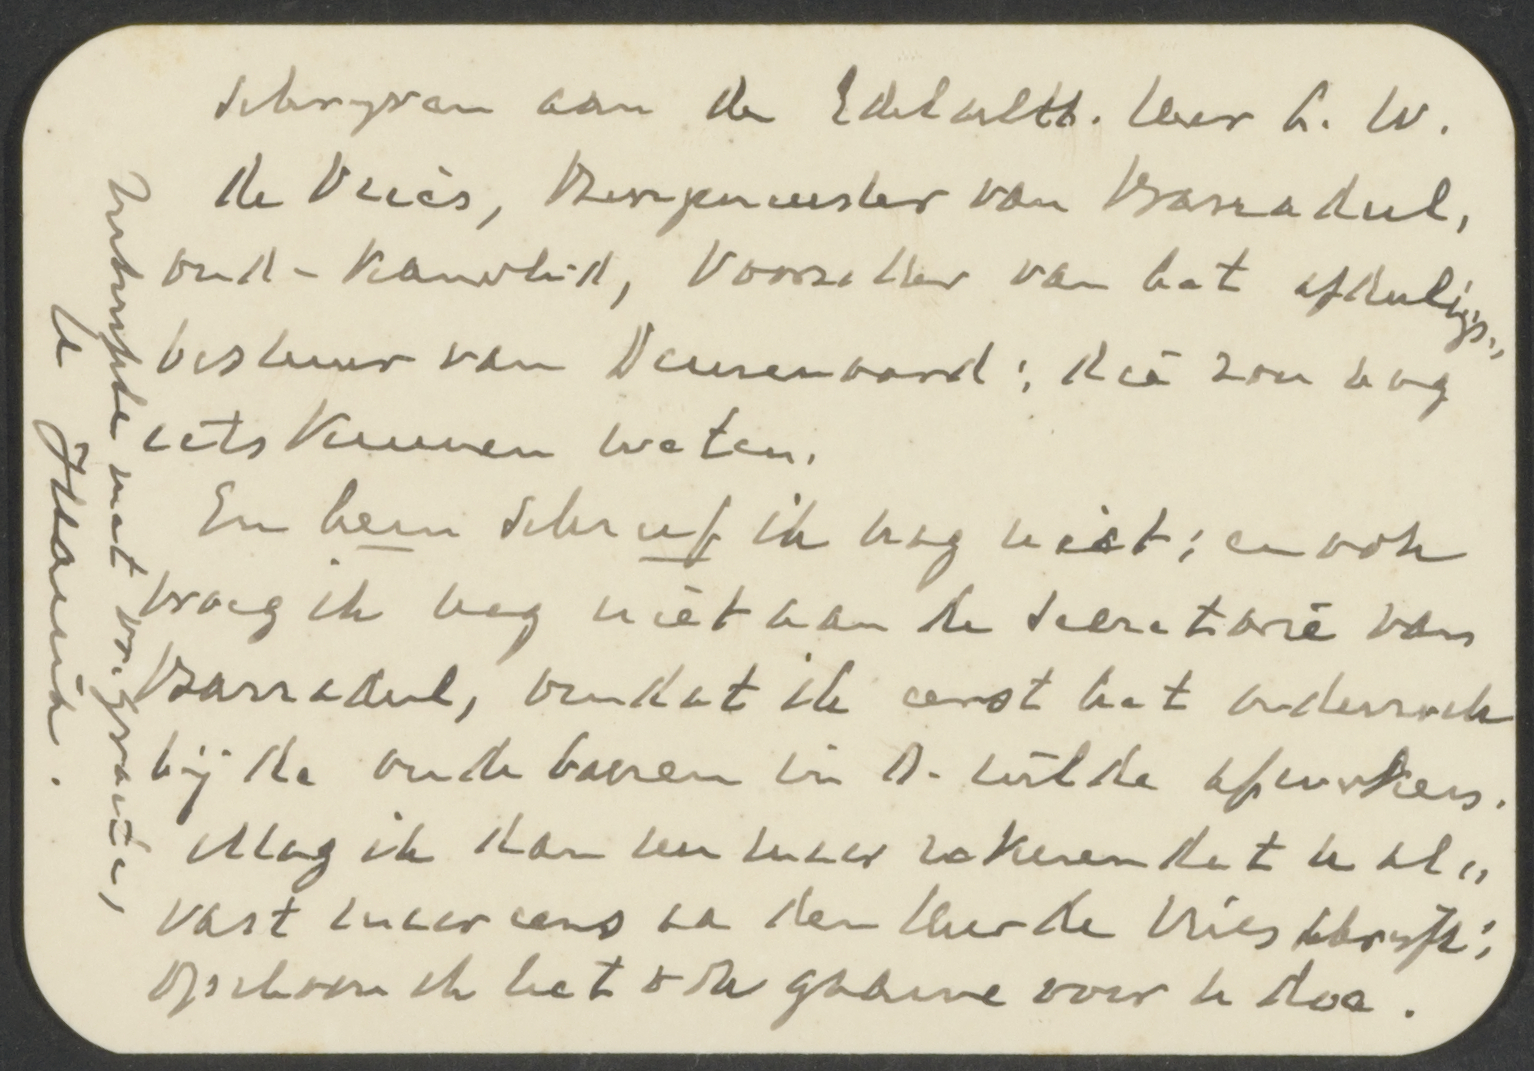 schrijven aan de Edelachtb. Heer L. W.
de Vries, Burgemeester van Barradeel,
oud-Kamerlid, Voorzitter van het afdeelings-
bestuur van Democraat; die zou nog
iets kunnen weten.
En hem schreef ik nog niet; en ook
vroeg ik nog niet aan de secretarie van
Barradeel, omdat ik eerst het onderzoek
bij de oude bazen in D. wilde afwerken.
Mag ik dan nu maar rekenen dat u al-
vast maar eens aan den Heer de Vries schrijft;
ofschoon ik het ook gaarne voor u doe.
met vr. groete,